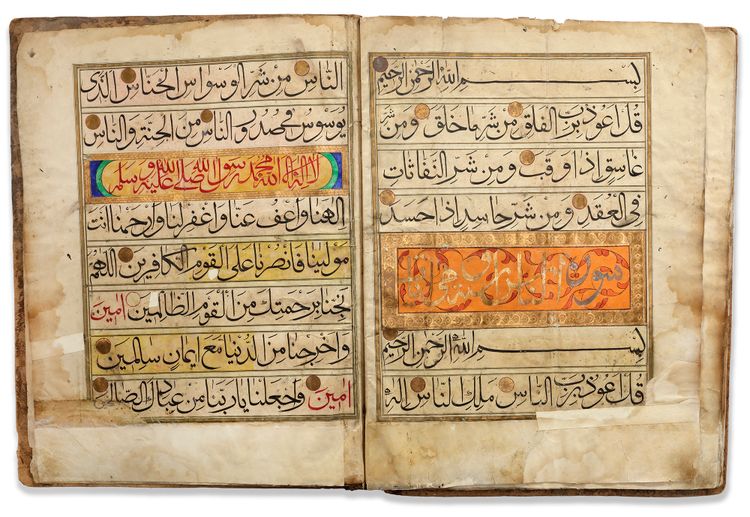 بسم الله الرحمن الرحيم
قل اعوذ برب الفلق من شر ما خلق و من شر
غاسق اذا وقب و من شر النفاثات
فى العقد و من شر حاسد اذا حسد
سورة الناس
بسم الله الرحمن الرحيم
قل اعوذ برب الناس ملك الناس اله
الناس من شر الوسواس الخناس الذى
يوسوس فى صدور الناس من الجنة والناس
لا اله الا الله محمد رسول الله صلى الله عليه وسلم
الهنا واعف عنا واغفر لنا وارحمنا انت
مولينا فانصرنا على القوم الكافرين اللهم
نجنا برحمتك من القوم الظالمين امين
واخرجنا من الدنيا مع ايمان سالمين
امين واجعلنا يا ربنا من عبادك